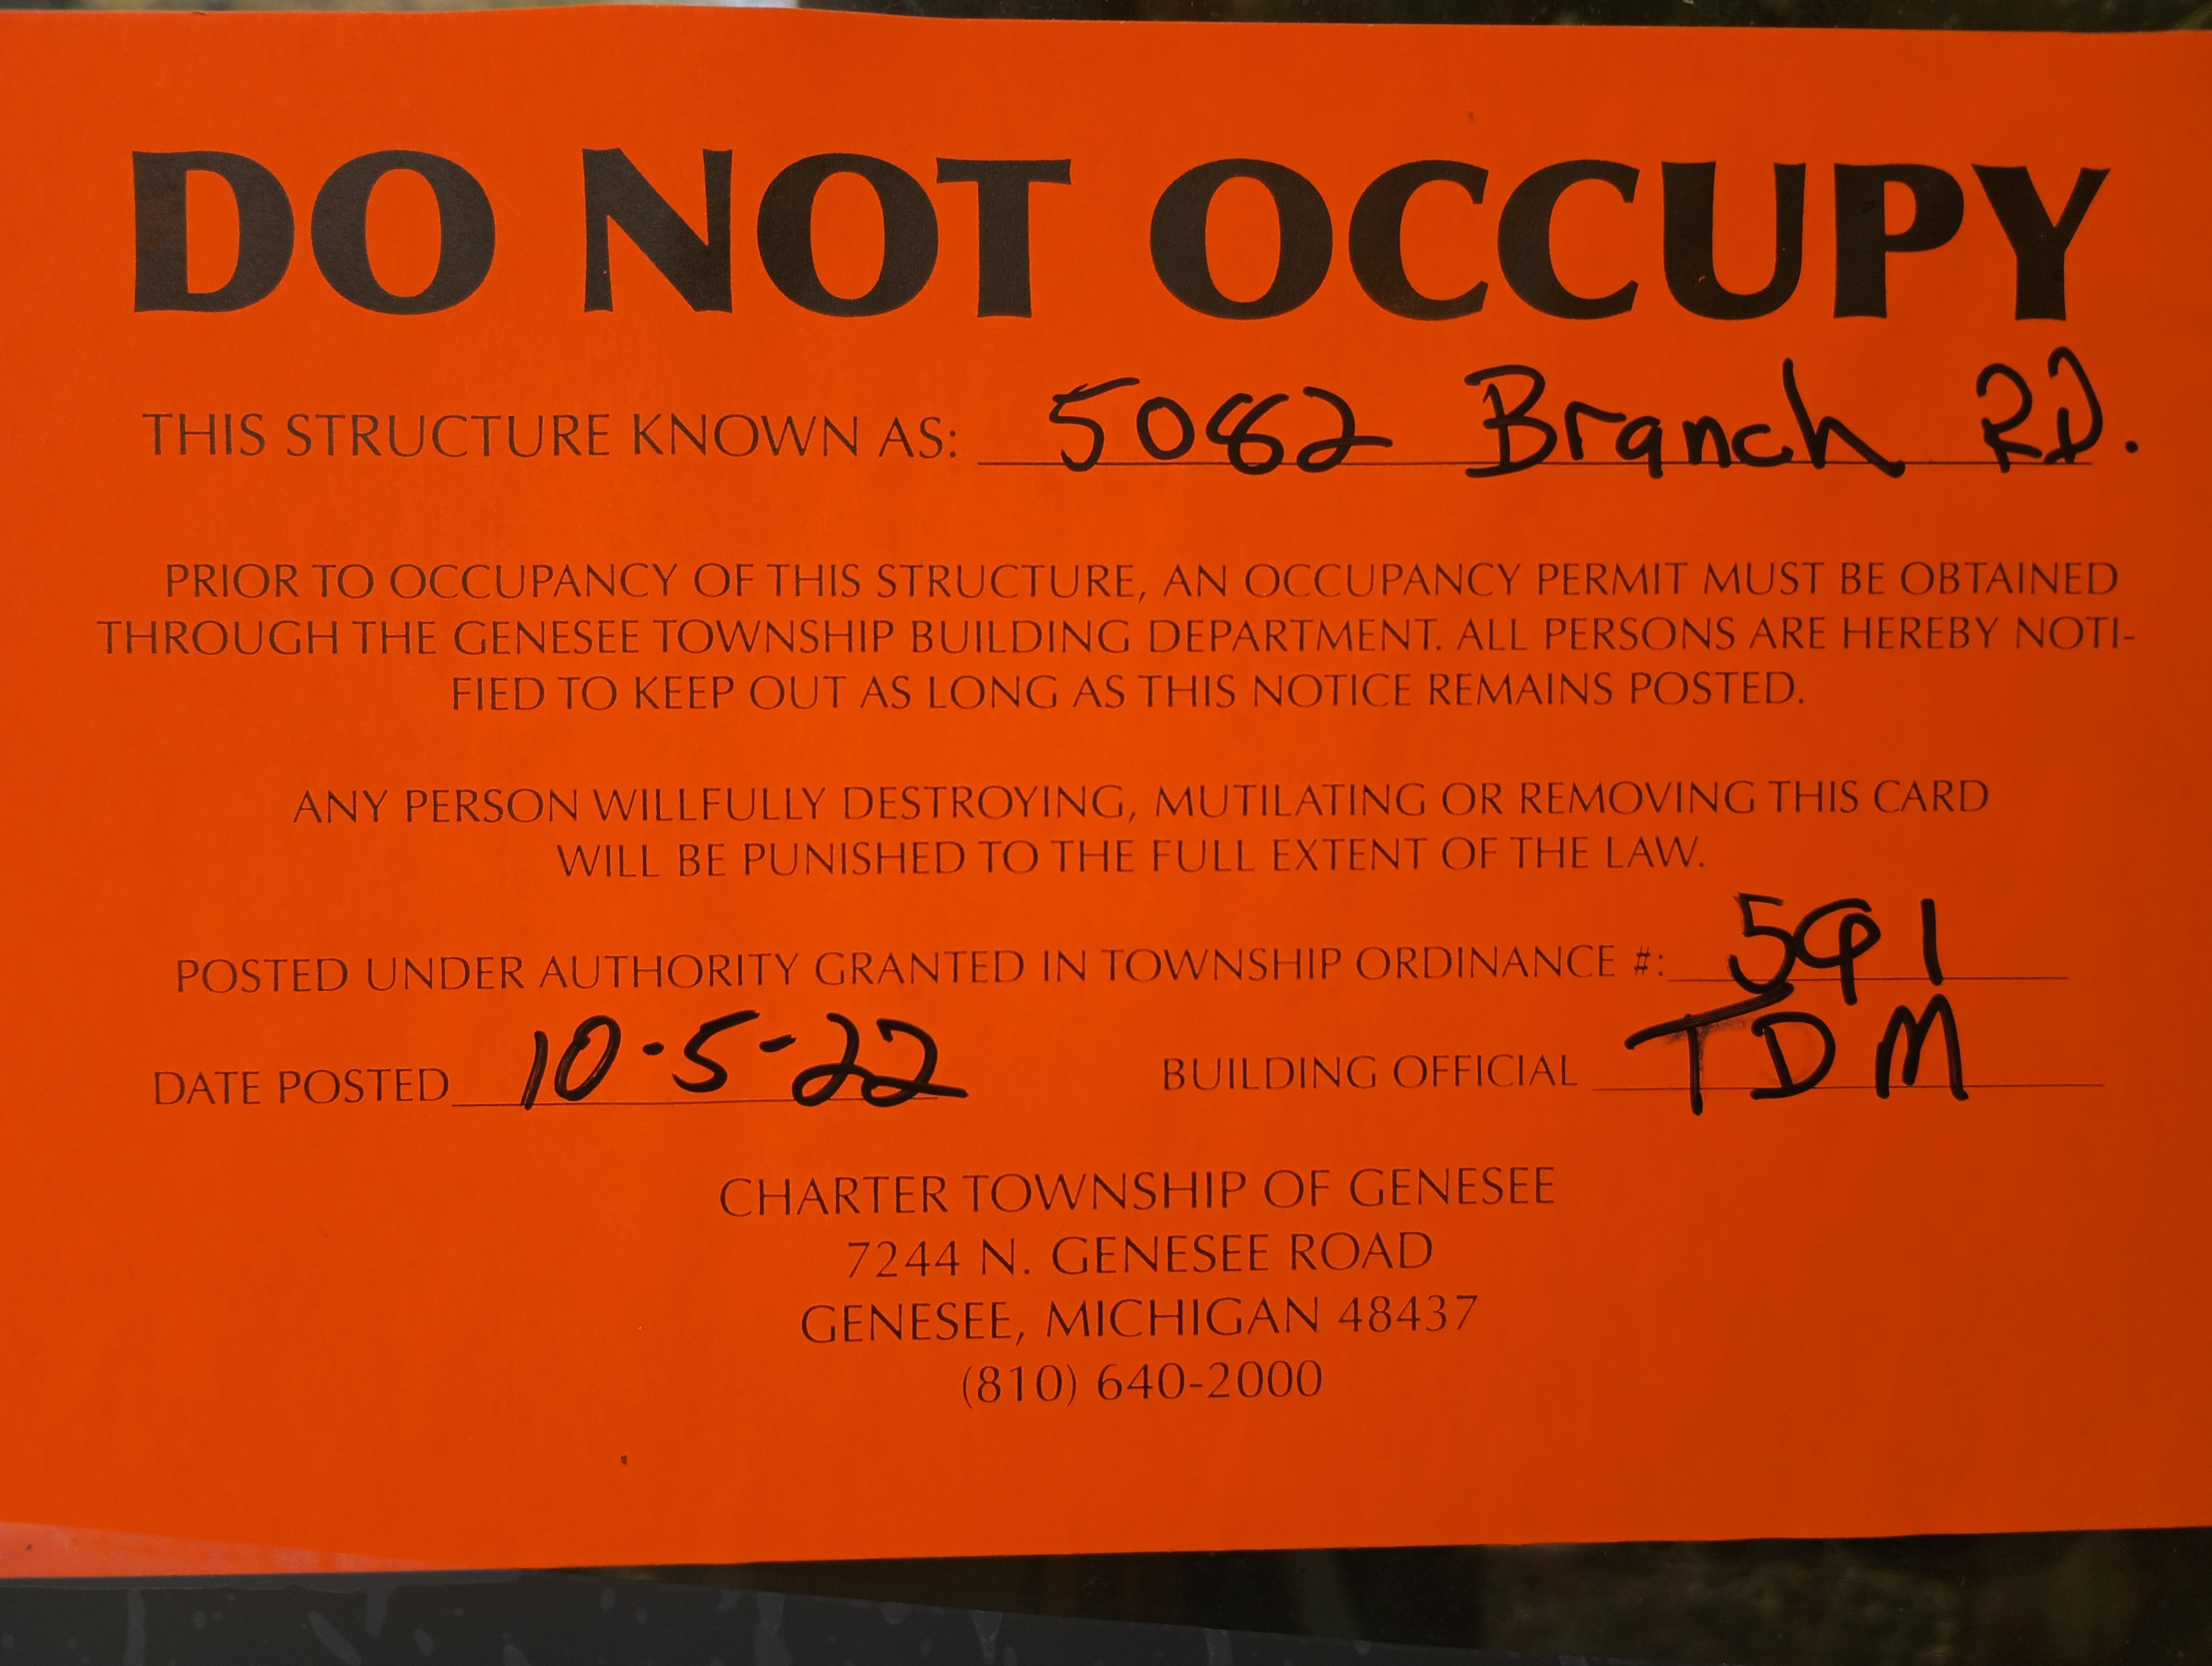 DO NOT OCCUPY
THIS STRUCTURE KNOWN AS: 5082 Branch Rd.
PRIOR TO OCCUPANCY OF THIS STRUCTURE, AN OCCUPANCY PERMIT MUST BE OBTAINED
THROUGH THE GENESEE TOWNSHIP BUILDING DEPARTMENT. ALL PERSONS ARE HEREBY NOTI-
FIED TO KEEP OUT AS LONG AS THIS NOTICE REMAINS POSTED.
ANY PERSON WILLFULLY DESTROYING, MUTILATING OR REMOVING THIS CARD
WILL BE PUNISHED TO THE FULL EXTENT OF THE LAW.
POSTED UNDER AUTHORITY GRANTED IN TOWNSHIP ORDINANCE #: 591
DATE POSTED 10-5-22 BUILDING OFFICIAL TDM
CHARTER TOWNSHIP OF GENESEE
7244 N. GENESEE ROAD
GENESEE, MICHIGAN 48437
(810) 640-2000